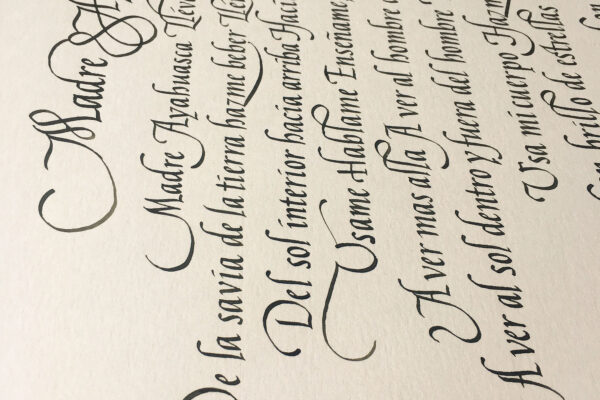 Madre
Madre Ayahuasca
De la savia de la tierra hazme beber
Del sol interior hacia arriba
Usame Hablame Enseñame
A ver mas alla A ver al hombre
A ver al sol dentro y fuera del hombre
Usa mi cuerpo
Con brillo de estrellas